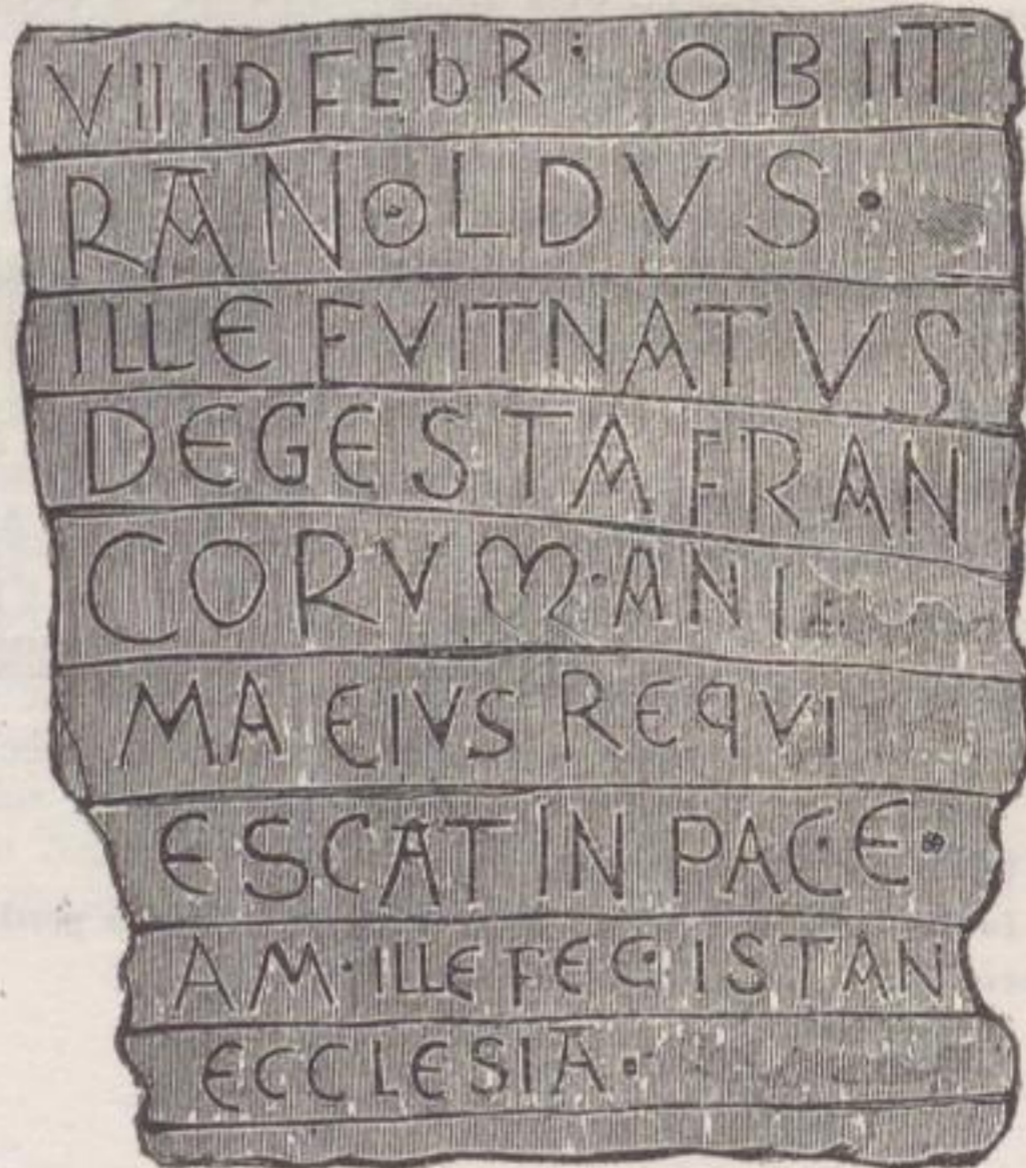 VIIIDFEbR· OBIIT
RANOLDVS·
ILLE FVIT NATVS
DE GESTA FRAN
CORVM·ANI
MA EIVS REQVI
ESCAT IN PACE·
AM·ILLE FEC·ISTAN
ECCLESIA·